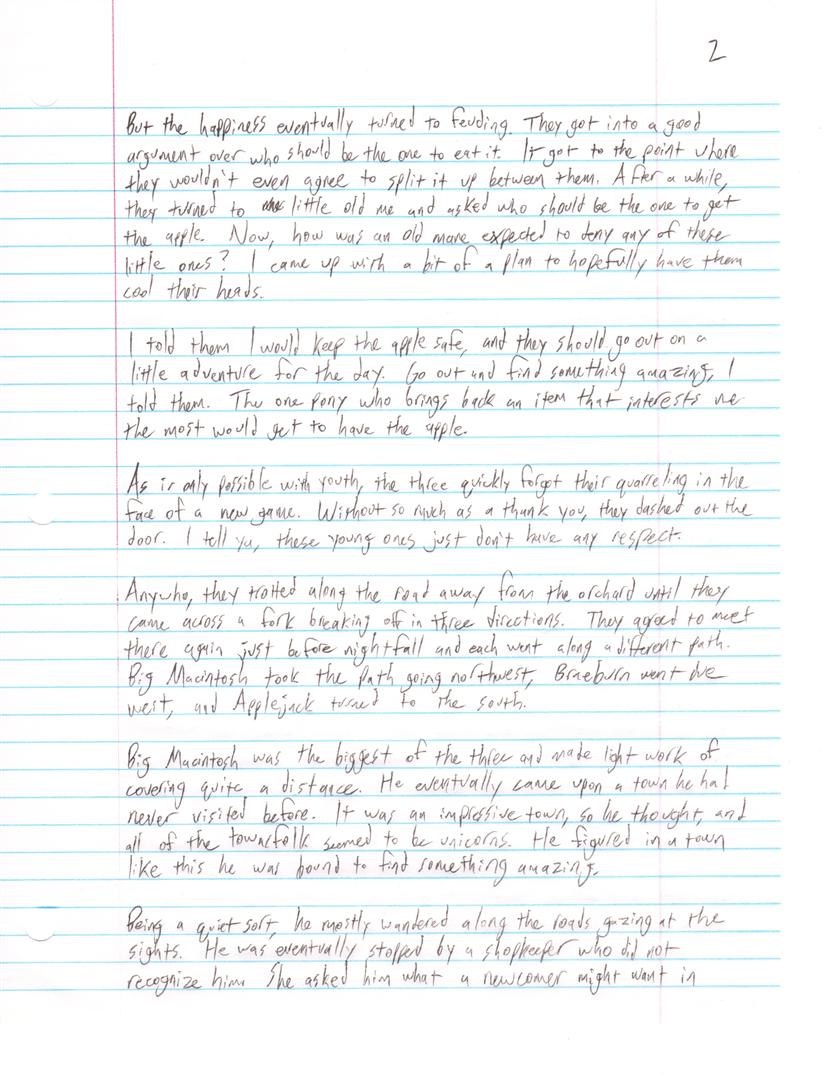 2
But the happiness eventually turned to feuding. They got into a good
argument over who should be the one to eat it. It got to the point where
they wouldn't even agree to split it up between them. After a while,
they turned to little old me and asked who should be the one to get
the apple. Now, how was an old mare expected to deny any of these
little ones? I came up with a bit of a plan to hopefully have them
cool their heads.
I told them I would keep the apple safe, and they should go out on a
little adventure for the day. Go out and find something amazing, I
told them. The one pony who brings back an item that interests me
the most would get to have the apple.
As is only possible with youth, the three quickly forgot their quarreling in the
face of a new game. Without so much as a thank you, they dashed out the
door. I tell ya, these young ones just don't have any respect.
Anywho, they trotted along the road away from the orchard until they
came across a fork breaking off in three directions. They agreed to meet
there again just before nightfall and each went along a different path.
Big Macintosh took the path going northwest, Braeburn went due
west, and Applejack turned to the south.
Big Macintosh was the biggest of the three and made light work of
covering quite a distance. He eventually came upon a town he had
never visited before. It was an impressive town, so he thought, and
all of the townsfolk seemed to be unicorns. He figured in a town
like this he was bound to find something amazing.
Being a quiet sort, he mostly wandered along the roads gazing at the
sights. He was eventually stopped by a shopkeeper who did not
recognize him. She asked him what a newcomer might want in